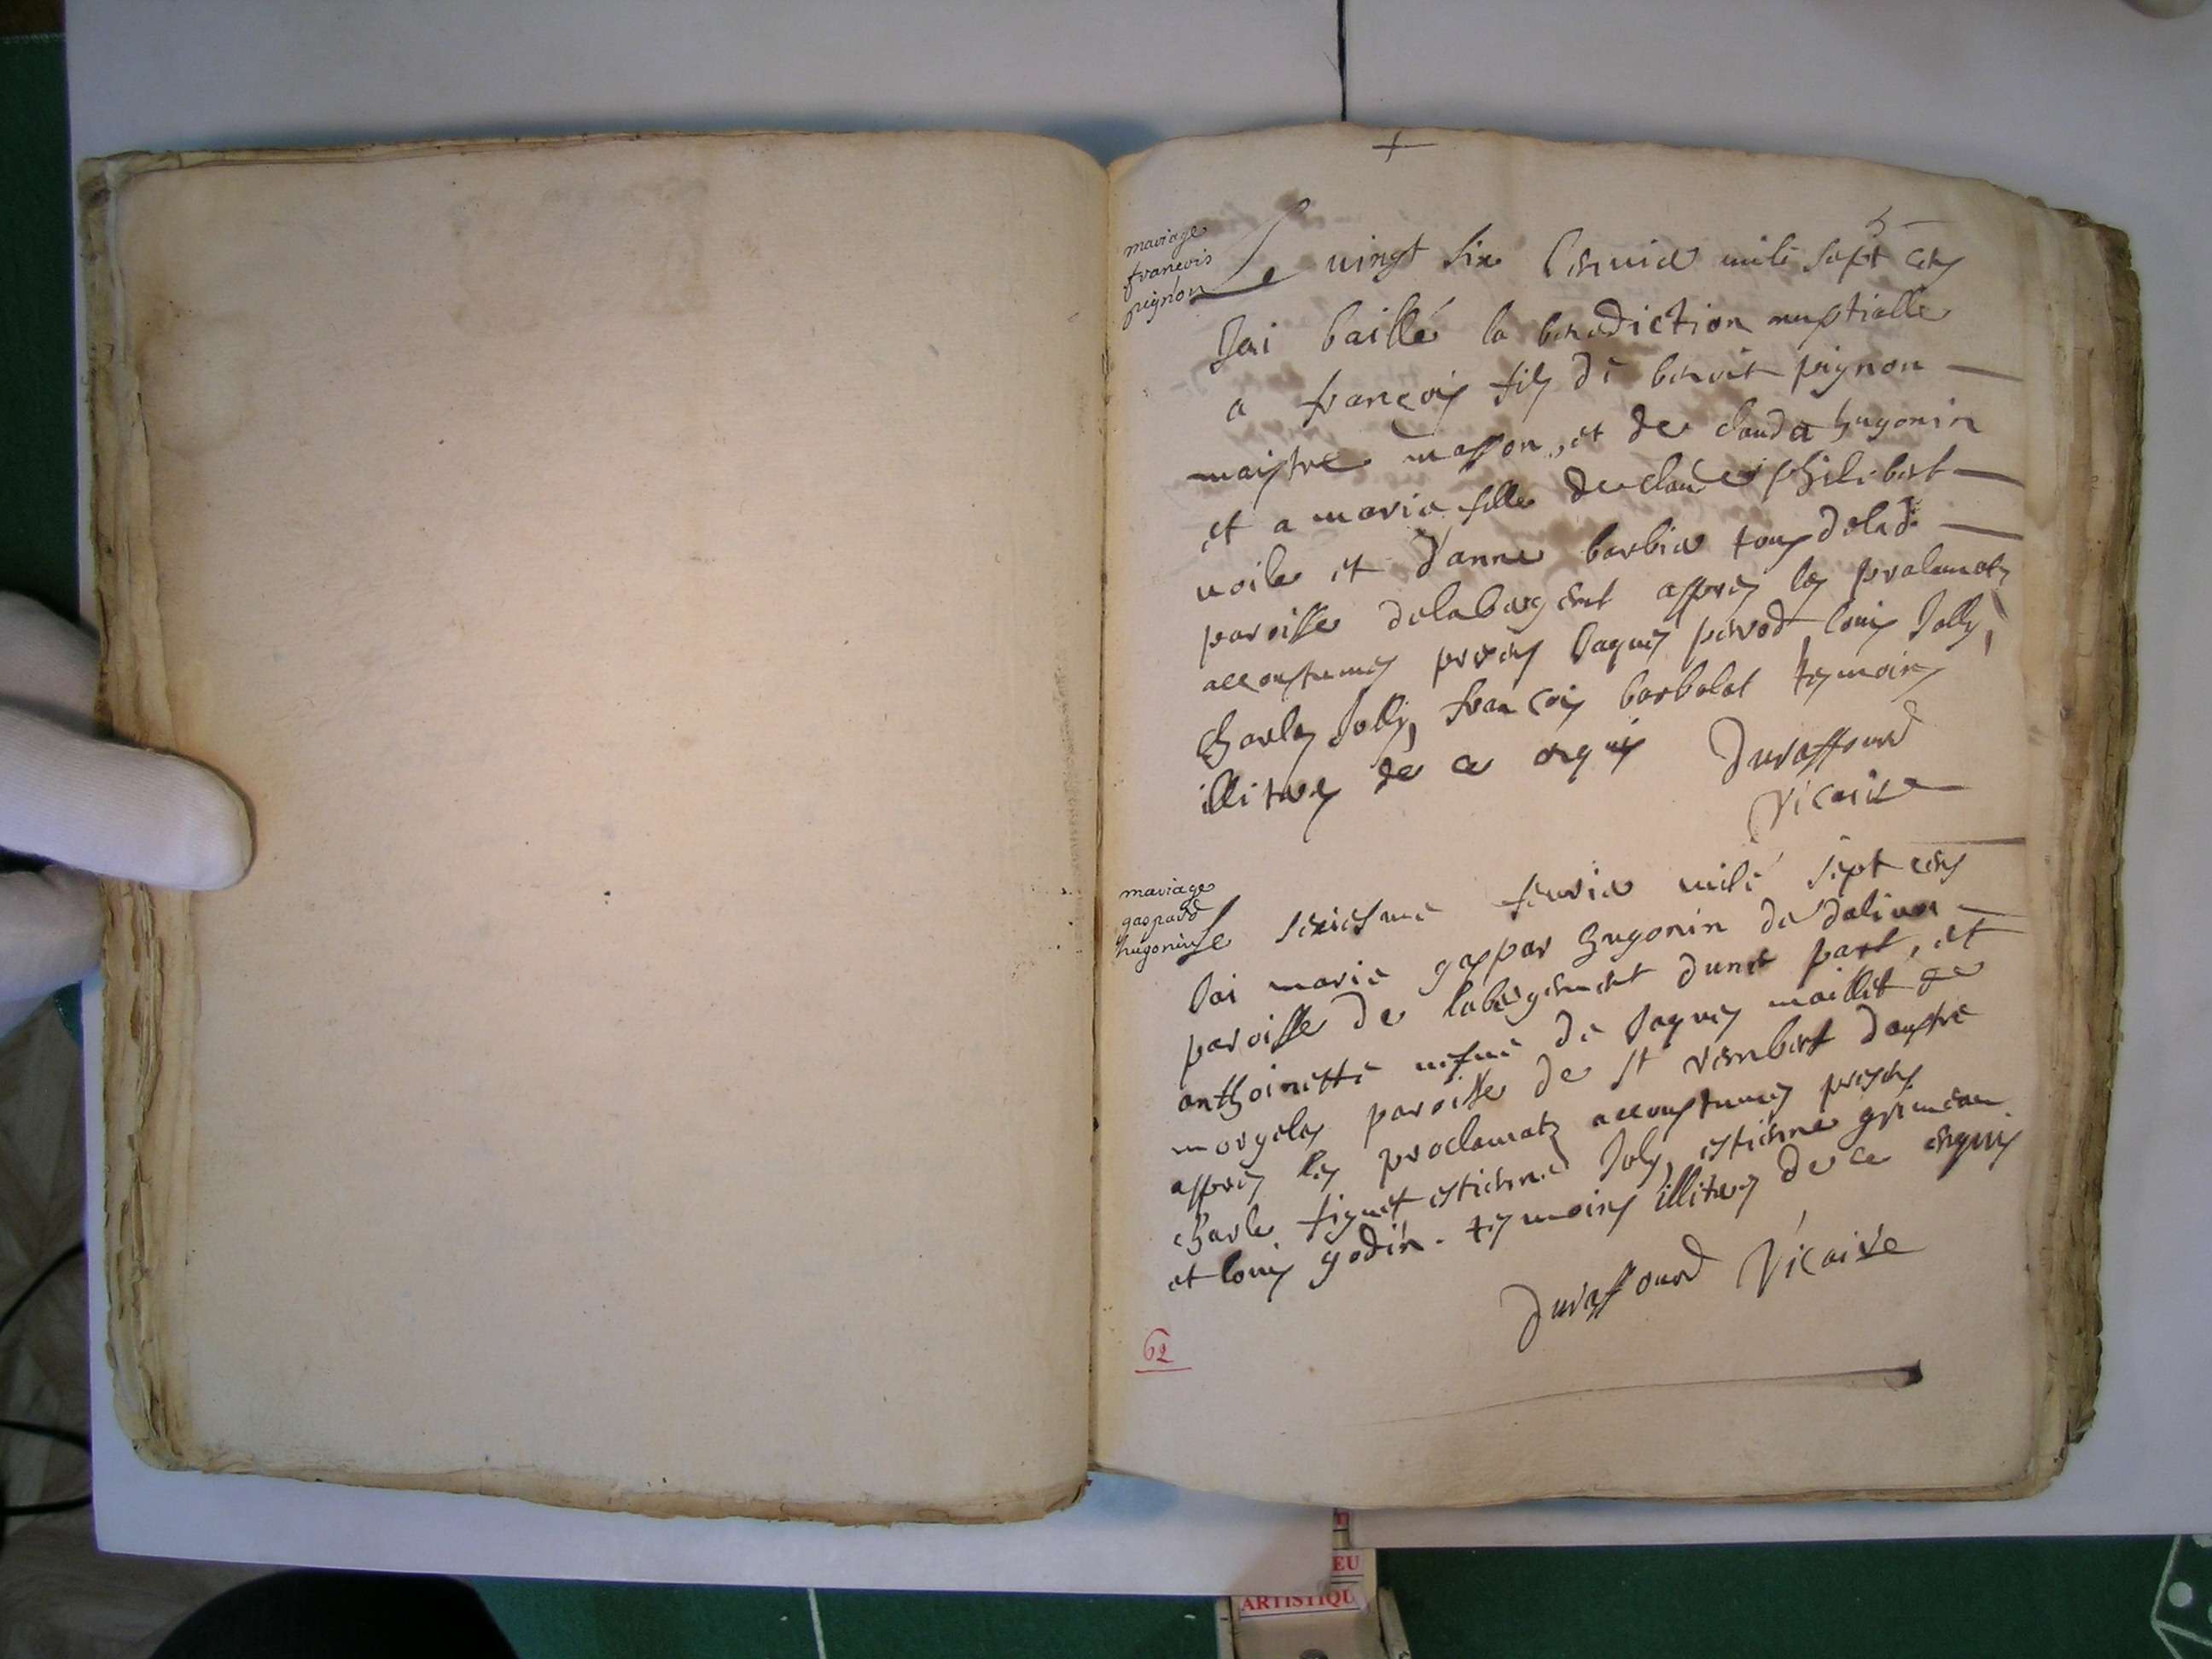 +
5
mariage
francois
pignon
Le vingt six Ienvier mile sept cens
Jai baillé la benediction nuptialle
a françois fils de benoit pignon
maistre masson, et de clauda hugonin
et a marie fille de claude philibert
voile et d'anne barbier tous de lad
paroisse de labergent aspres les
accoustumes presens Jaques perrod, louis Jolly,
Charles Jolly, françois barbelat tesmoins
illitres de ce enquis Duraffourd
Vicaire
mariage
gaspard
hugonin
Le sexiesme feuvrier mile sept cens
Jai marié gaspar hugonin de daliva
paroisse de labergement dune part, et
anthoinette vefue de Jaques maillet de
morgelas paroisse de st rembert daustre
aspres les proclamats accoustumes presens
charle tignet estienne Joly, estienne grimeau
et louis godin. tesmoins illitres de ce enquis
Duraffourd Vicaire
62
EU
ARTISTIQU